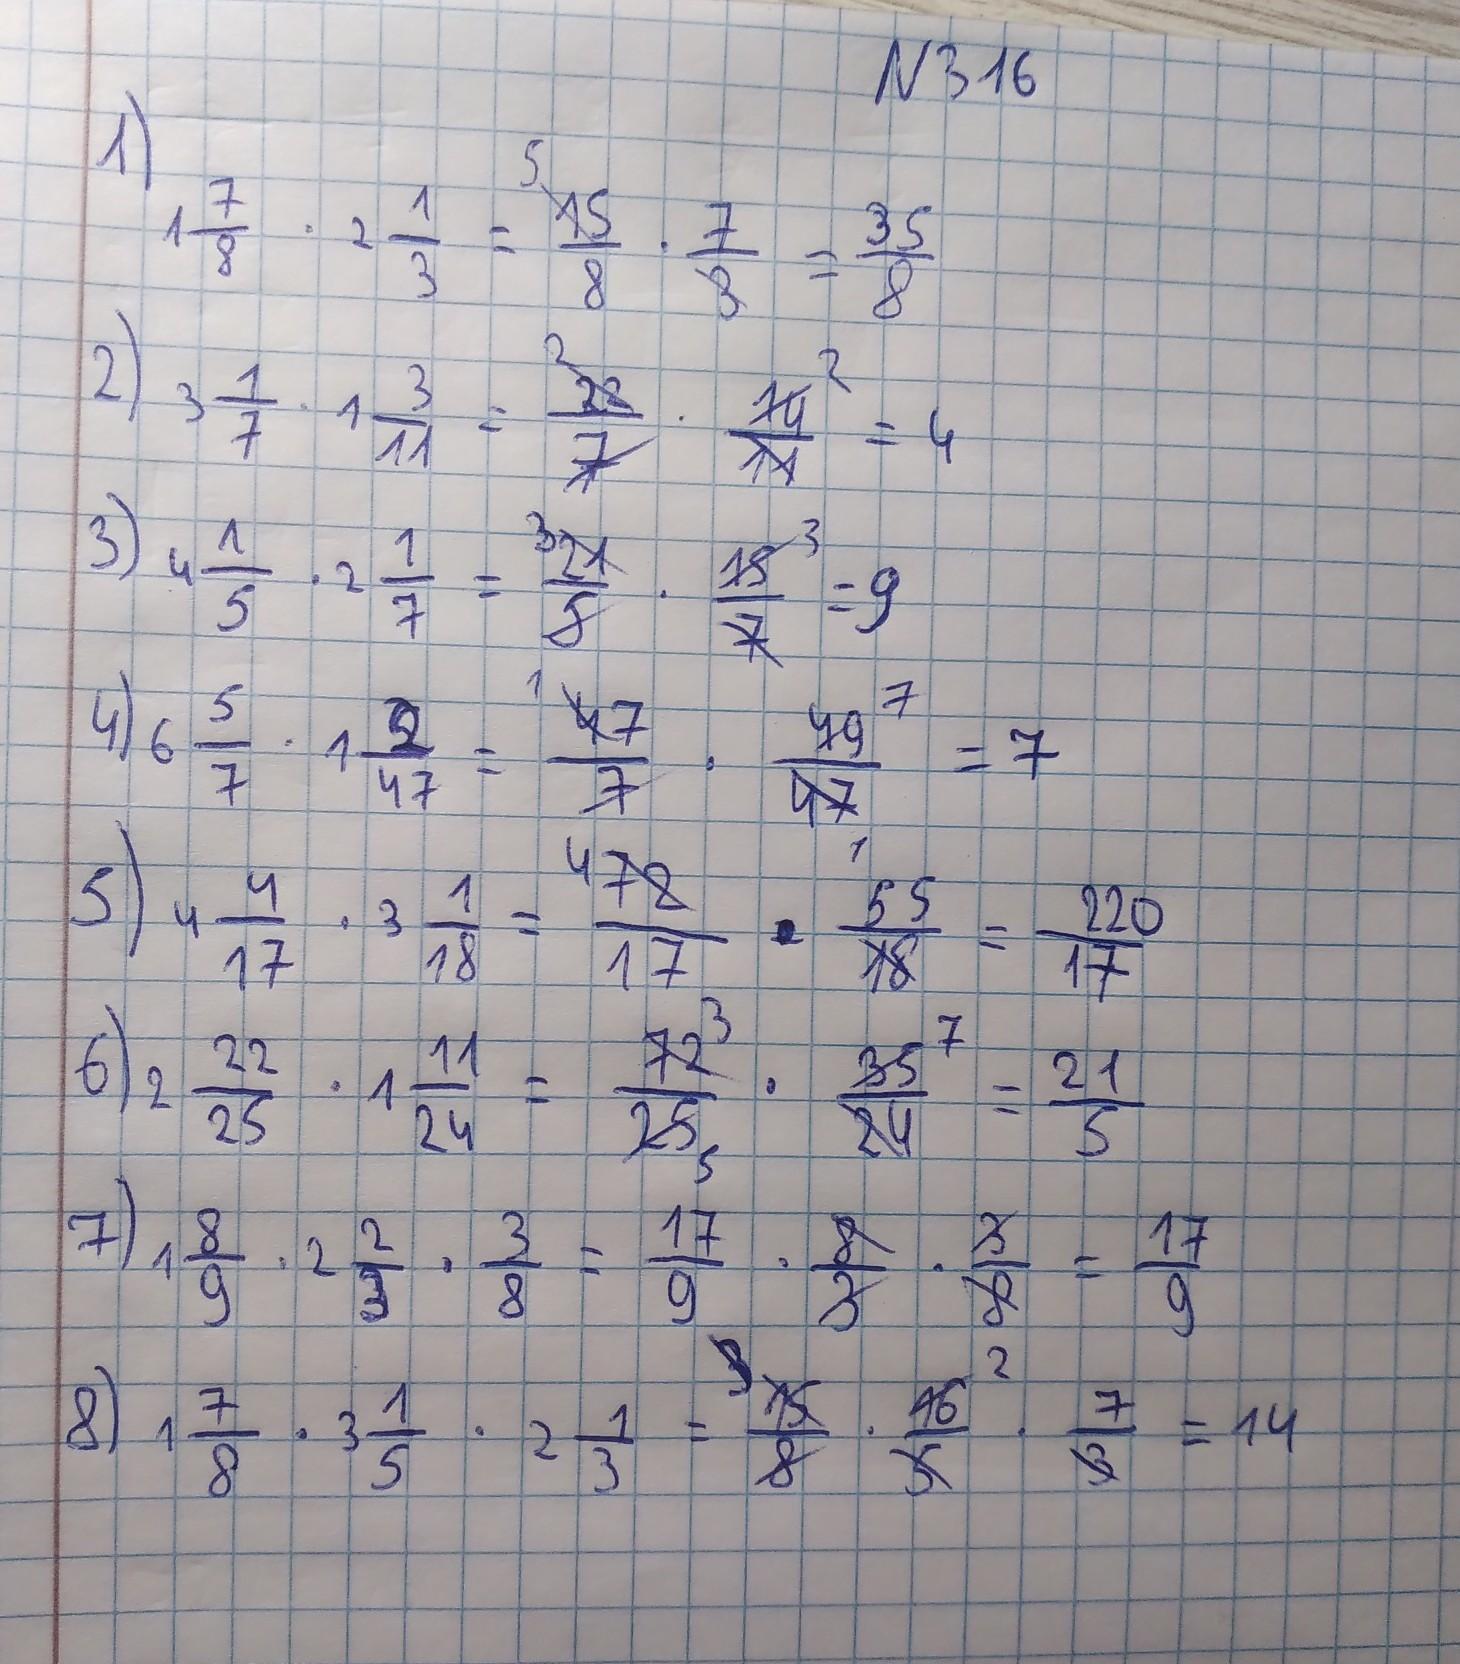 N316
1) 1 7/8 · 2 1/3 = 5 15/8 · 7/3 = 35/8
2) 3 1/7 · 1 3/11 = 2 22/7 · 14/11 2 = 4
3) 4 1/5 · 2 1/7 = 3 21/5 · 15/7 3 = 9
4) 6 5/7 · 1 2/47 = 1 47/7 · 49/47 7 = 7
5) 4 4/17 · 3 1/18 = 4 72/17 · 55/18 1 = 220/17
6) 2 22/25 · 1 11/24 = 72/25 3 5 · 35/24 7 = 21/5
7) 1 8/9 · 2 2/3 · 3/8 = 17/9 · 8/3 · 3/8 = 17/9
8) 1 7/8 · 3 1/5 · 2 1/3 = 15/8 · 16/5 2 · 7/3 = 14